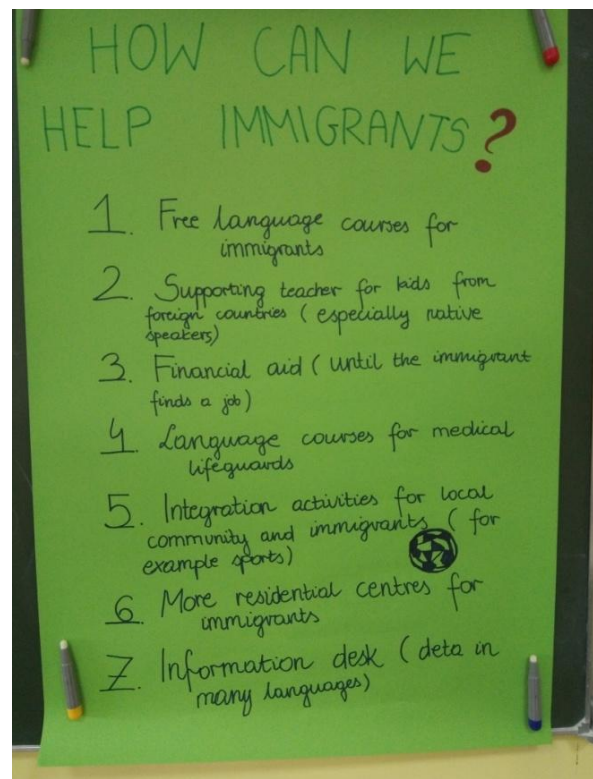 HOW CAN WE
HELP IMMIGRANTS?
1. Free language courses for
immigrants
2. Supporting teacher for kids from
foreign countries (especially native
speakers)
3. Financial aid (until the immigrant
finds a job)
4. Language courses for medical
lifeguards
5. Integration activities for local
community and immigrants (for
example sports)
6. More residential centres for
immigrants
7. Information desk (deta in
many languages)